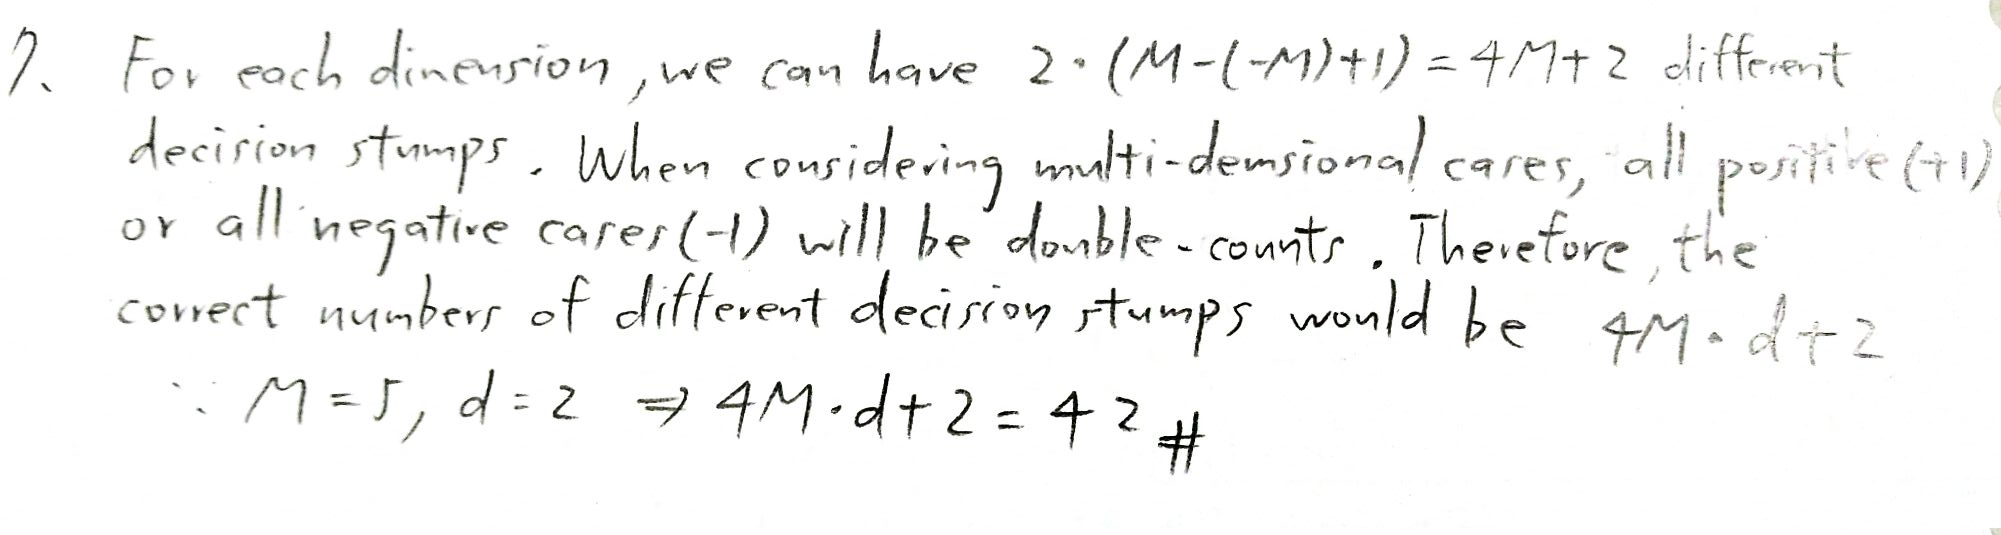 7. For each dinension, we can have 2·(M-(-M)+1) = 4M+2 different
decision stumps. When considering multi-demsional cases, all positive (+1)
or all negative cases (-1) will be double-counts. Therefore, the
correct numbers of different decision stumps would be 4M·d+2
∵ M=5, d=2 ⇒ 4M·d+2=42 #